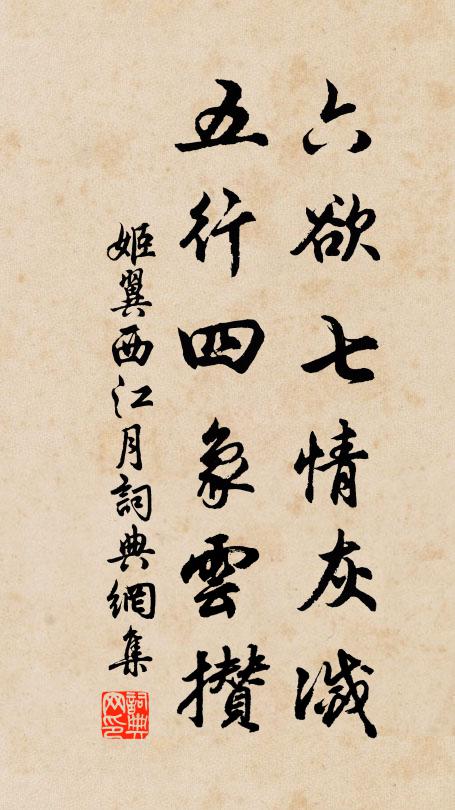 六欲七情灰滅
五行四象雲攢
姬翼西江月詞典網集
詞典网印